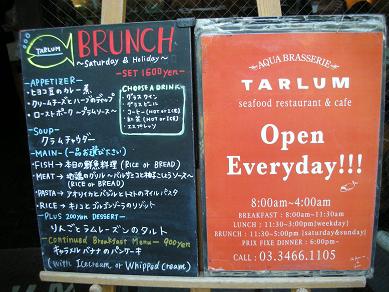 TARLUM
BRUNCH
~Saturday & Holiday~
-SET 1600yen-
-APPETIZER-
・ヒヨコ豆のカレー煮
・クリームチーズとハーブのディップ
・ローストポーク
CHOOSE A DRINK
・グラスワイン
・グラスビール
・コーヒー (HOT or ICE)
・紅茶 (HOT or ICE)
・エスプレッソ
-SOUP-
・クラムチャウダー
-MAIN- (一品お選び下さい)
・FISH→本日の鮮魚料理 (RICE or BREAD)
・MEAT→
(RICE or BREAD)
・PASTA→アオリイカとバジルとトマトのオイルパスタ
・RICE→キノコとゴルゴンゾーラのリゾット
-PLUS 200yen DESSERT-
りんごとラムレーズンのタルト
Continued Breakfast Menu- 900yen
キャラメルバナナのパンケーキ
(with Icecream or Whipped cream)
AQUA BRASSERIE
TARLUM
seafood restaurant & cafe
Open
Everyday!!!
8:00am~4:00am
BREAKFAST : 8:00am~11:30am
LUNCH : 11:30~3:00pm[weekday]
BRUNCH : 11:30~5:00pm [saturday&sunday]
PRIX FIXE DINNER : 6:00pm~
CALL : 03.3466.1105